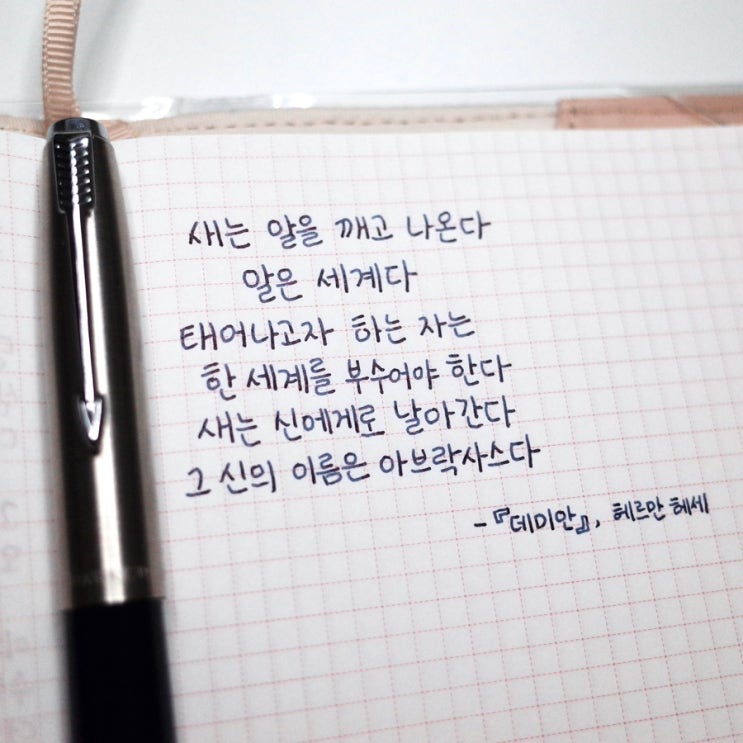 새는 알을 깨고 나온다
알은 세계다
태어나고자 하는 자는
한 세계를 부수어야 한다
새는 신에게로 날아간다
그 신의 이름은 아브락사스다
-『데미안』, 헤르만 헤세